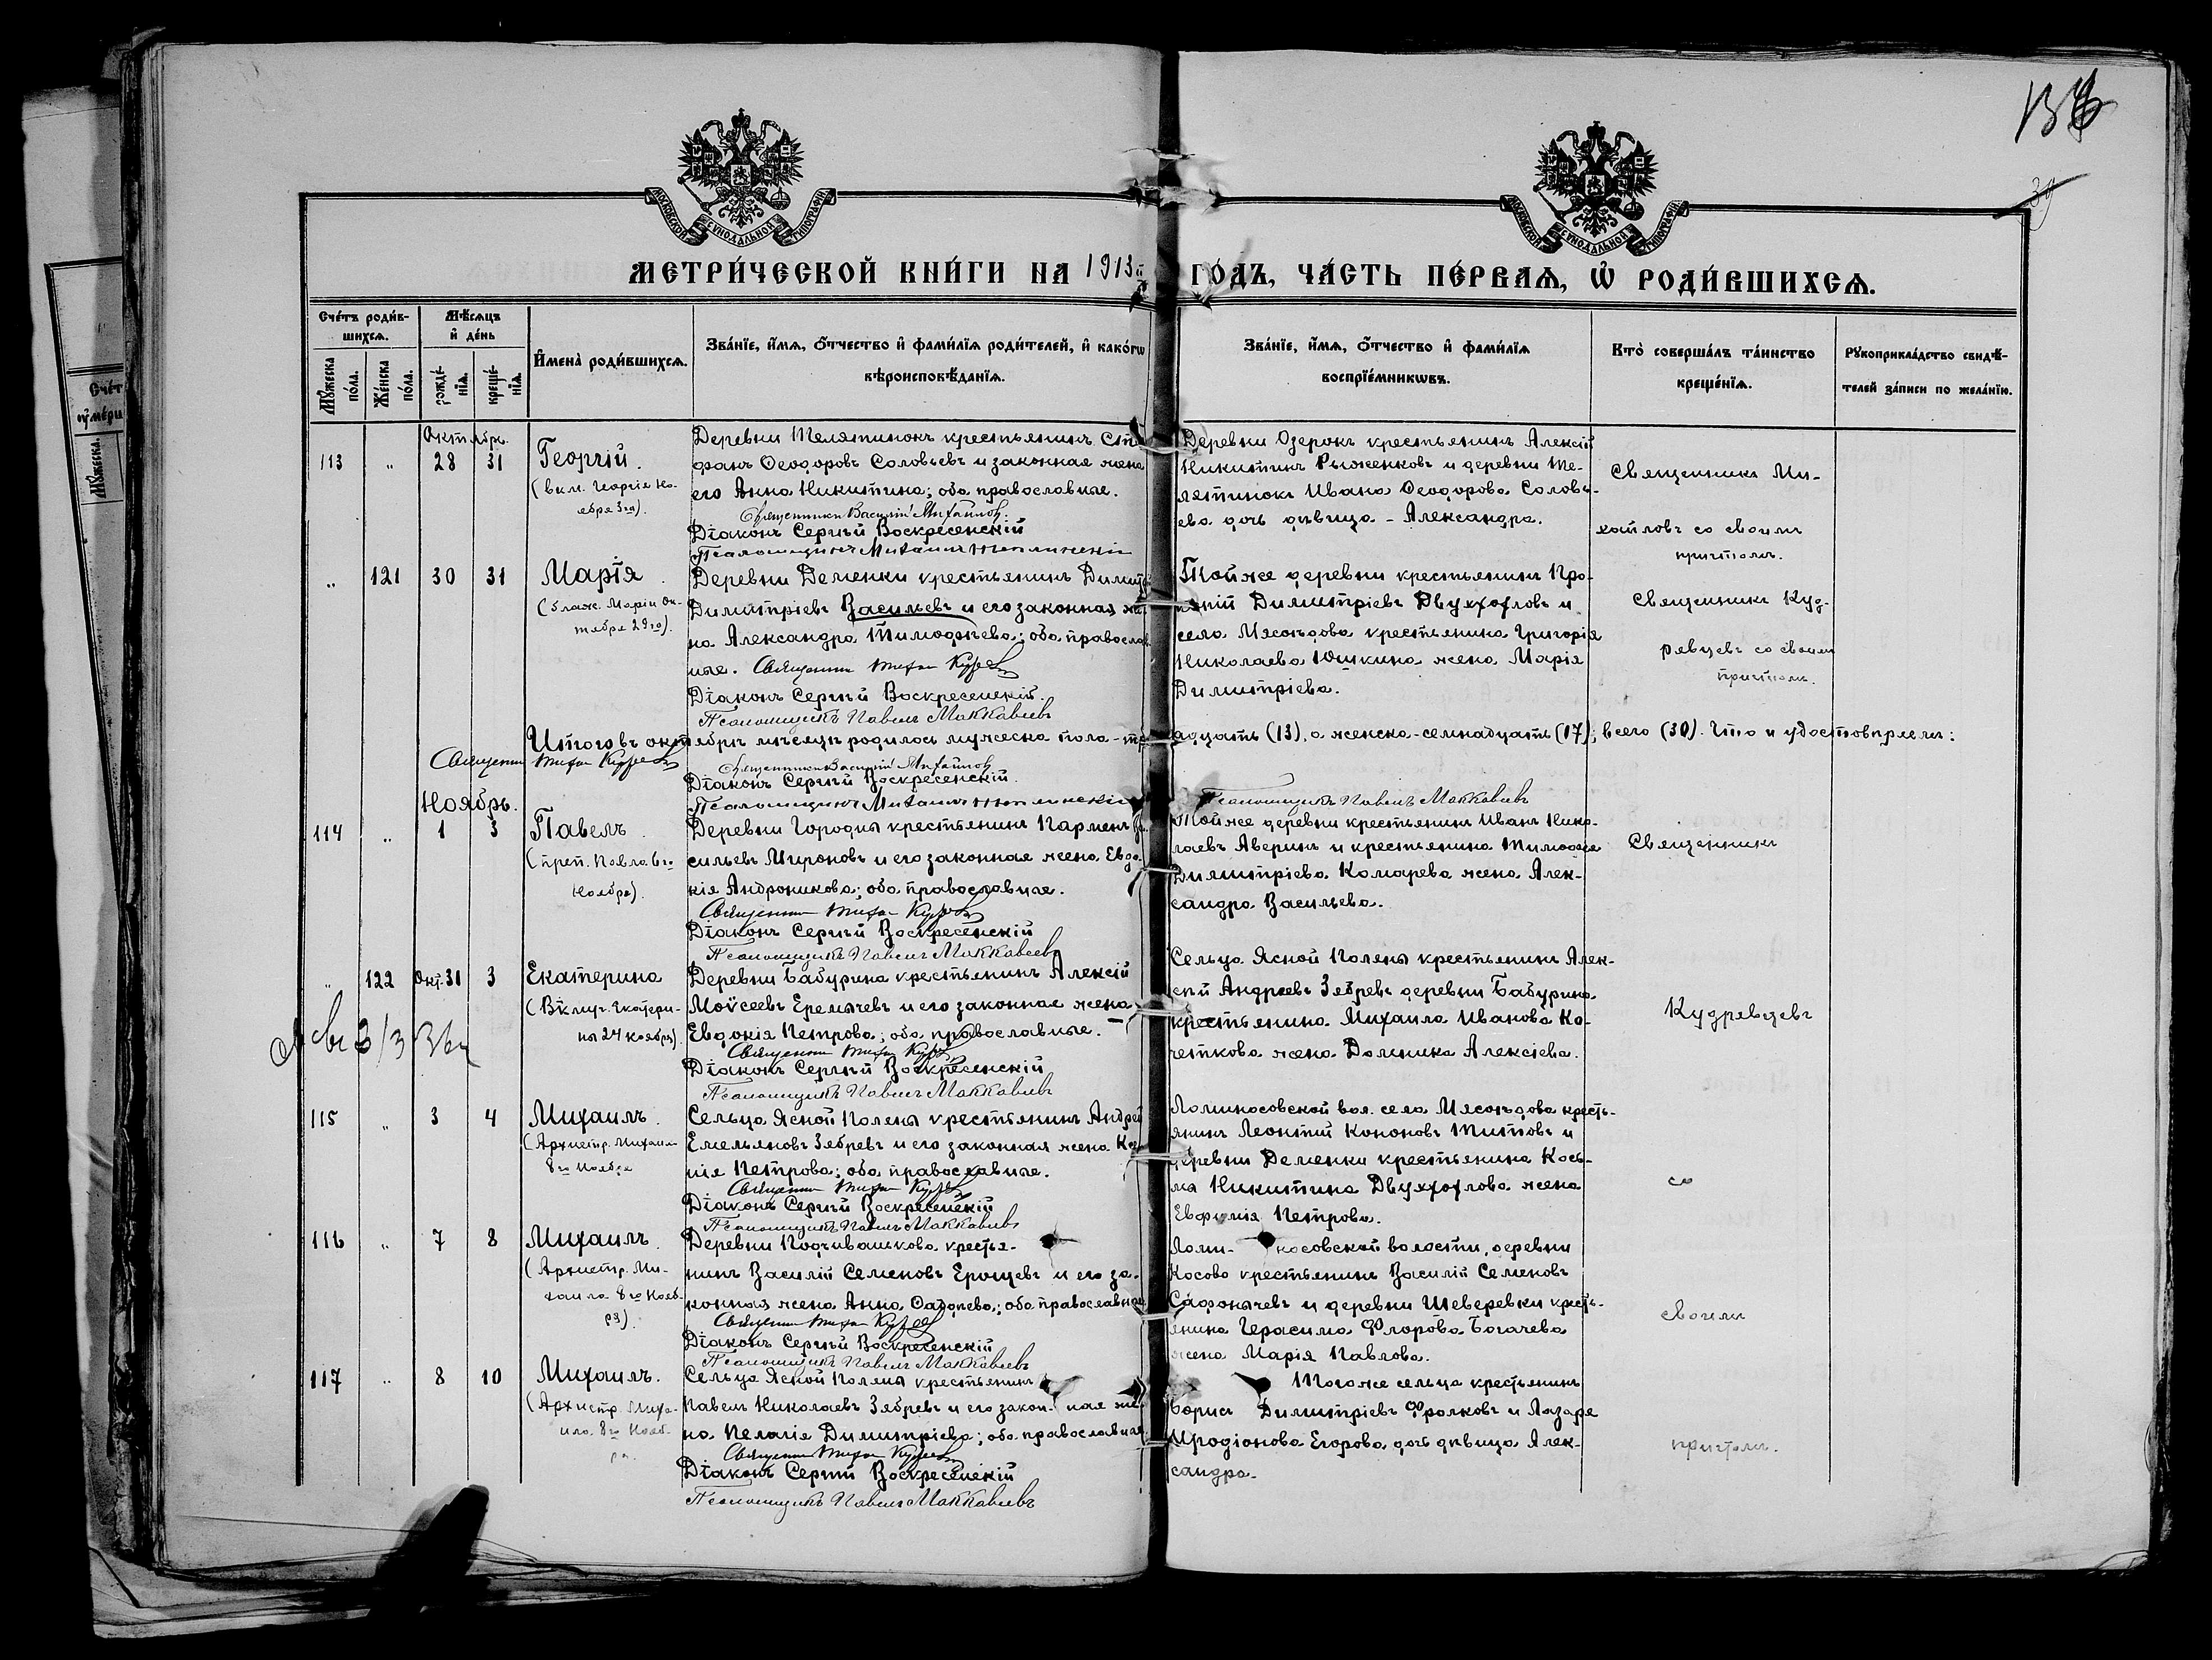 136
39
МОСКОВСКОЙ СѴНОДАЛЬНОЙ ТИПОГРАФІИ
МОСКОВСКОЙ СѴНОДАЛЬНОЙ ТИПОГРАФІИ
МЕТРИ́ЧЕСКОЙ КНИ́ГИ НА 1913й ГО́ДЪ, ЧА́СТЬ ПЕ́РВАѦ, Ѡ РОДИ́ВШИХСѦ.
Сче́тъ роди́в-
шихсѧ.
Мꙋ́жеска по́ла.
Же́нска по́ла.
Мѣ́сѧцъ
и҆ де́нь
рожде́-
нїѧ.
креще́-
нїѧ.
И҆мена̀ роди́вшихсѧ.
Зва́нїе, и҆́мѧ, ѻ҆́тчество и҆ фами́лїѧ роди́телей, и҆ како́гѡ
вѣроисповѣ́данїѧ.
Зва́нїе, и҆́мѧ, ѻ҆́тчество и҆ фами́лїѧ
воспрїе́мникѡвъ.
Кто̀ соверша́лъ та́инство
креще́нїѧ.
Рꙋкоприкла́дство свидѣ́-
телей за́писи по жела́нїю.
Октябрь.
113 „ 28 31
Георгій.
(вкм. Георгія но-
ября 3го).
Деревни Телятинокъ крестьянинъ Сте
фанъ Ѳеодоровъ Соловьевъ и законная жена
его Анна Никитина; оба православные.
Священникъ Василій Михайлов
Дїаконъ Сергѣй Воскресенскій
Псаломщикъ Михаилъ
Деревни Озерокъ крестьянинъ Алексѣй
Никитинъ Рыженковъ и деревни Те-
лятинокъ Ивана Ѳеодорова Соловь-
ева дочь дѣвица - Александра.
Священникъ Ми-
хайловъ со своимъ
причтомъ.
„ 121 30 31
Марія
(блаж. Маріи ок-
тября 29го).
Деревни Деменки крестьянинъ Димит
Димитріевъ Васильевъ и его законная же-
на Александра Тимоѳеева; оба православ
ные. Священникъ Тихон Кудрев
Дїаконъ Сергѣй Воскресенскій.
Псаломщикъ Павелъ Маккавеевъ
Той же деревни крестьянинъ Про-
кпій Димитріевъ Двуххофловъ и
села Мясоѣдова крестьянина Григорія
Николаева Юшкина жена Марія
Димитріева.
Священникъ Куд-
рявцевъ со своимъ
причтомъ.
Итого въ октябрѣ мѣсяцѣ родилось мужеска пола - тр адцать (13), а женска - семнадцать (17); всего (30). Что и удостовѣряемъ:
Священник Тихон Кудрев
Священникъ Василій Михайлов
Дїаконъ Сергѣй Воскресенскій.
Псаломщикъ Михаилъ
Псаломщикъ Павелъ Маккавеевъ
Ноябрь.
114 „ 1 3
Павелъ.
(преп. Павла 6го
Ноября).
Деревни Городна крестьянинъ Парменъ Ва
сильевъ Мироновъ и его законная жена Евдо-
кія Андроникова; оба православные.
Священник Тихон Кудрев
Дїаконъ Сергѣй Воскресенскій
Псаломщикъ Павелъ Маккавеевъ
Той же деревни крестьянинъ Иванъ Нико-
лаевъ Аверинъ и крестьянина Тимоѳея
Димитріева Комарева жена Алек-
сандра Васильева.
Священникъ
„ 122 Окт. 31 3
Екатерина
(Вкмуч. Екатери-
ны 24 ноября).
Деревни Бабурина крестьянинъ Алексій
Моѵсеевъ Еремичевъ и его законная жена
Евдокія Петрова; оба православные. -
Священник Тихон Кудрев
Дїаконъ Сергѣй Воскресенскій
Псаломщикъ Павелъ Маккавеевъ
Сельца Ясной Поляны крестьянинъ Алек-
сѣй Андреевъ Зябревъ деревни Бабурина
крестьянина Михаила Иванова Ко-
четкова жена Домника Алексіева.
Кудрявцевъ
115 „ 3 4
Михаилъ.
(Архистр. Михаила
8го Ноября
Сельца Ясной Поляны крестьянинъ Андрей
Емельяновъ Зябревъ и его законная жена Ксе
нія Петрова; оба православные.
Священник Тихон Кудрев
Дїаконъ Сергѣй Воскресенскій
Псаломщикъ Павелъ Маккавеевъ
Ломинцовской вол. села Мясоѣдова кресть-
янинъ Леонтій Кононовъ Титовъ и
деревни Деменки крестьянина Кось-
мы Никитина Двуххофлова жена
Евфимія Петрова.
со
116 „ 7 8
Михаилъ.
(Архистр. Ми-
хаила 8го Нояб-
ря).
Деревни Подъиванькова крестья-
нинъ Василій Семеновъ Ерощевъ и его за-
конная жена Анна Фадѣева; оба православные
Священник Тихон Кудрев
Дїаконъ Сергѣй Воскресенскій
Псаломщикъ Павелъ Маккавеевъ
Ломи- новской волости, деревни
Косово крестьянинъ Василій Семеновъ
Сафонычевъ и деревни Шеверевки кресть-
янина Герасима Флорова Богачева
жена Марія Павлова.
своимъ
117 „ 8 10
Михаилъ.
(Архистр. Миха-
ила 8го Нояб-
ря.
Сельца Ясной Поляны крестьянинъ
Павелъ Николаевъ Зябревъ и его закон- ная же-
на Пелагія Димитріева; оба православные
Священник Тихон Кудрев
Дїаконъ Сергѣй Воскресенскій
Псаломщикъ Павелъ Маккавеевъ
Того же сельца крестьянинъ
Борисъ Димитріевъ Фролковъ и Лазаря
Иродіонова Егорова дочь дѣвица Алек-
сандра.
причтомъ.